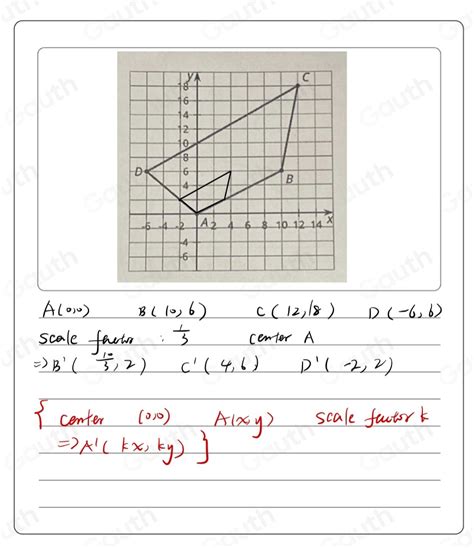 y
C
18
16
14
12
10
8
D
6
B
4
2
A
-6 -4 -2 2 4 6 8 10 12 14 x
-4
-6
A(0,0) B(10,6) C(12,18) D(-6,6)
scale factor : 1/3 center A
=> B'(10/3, 2) C'(4,6) D'(-2,2)
{ center (0,0) A(x,y) scale factor k
=> A'(kx, ky) }
Gauth